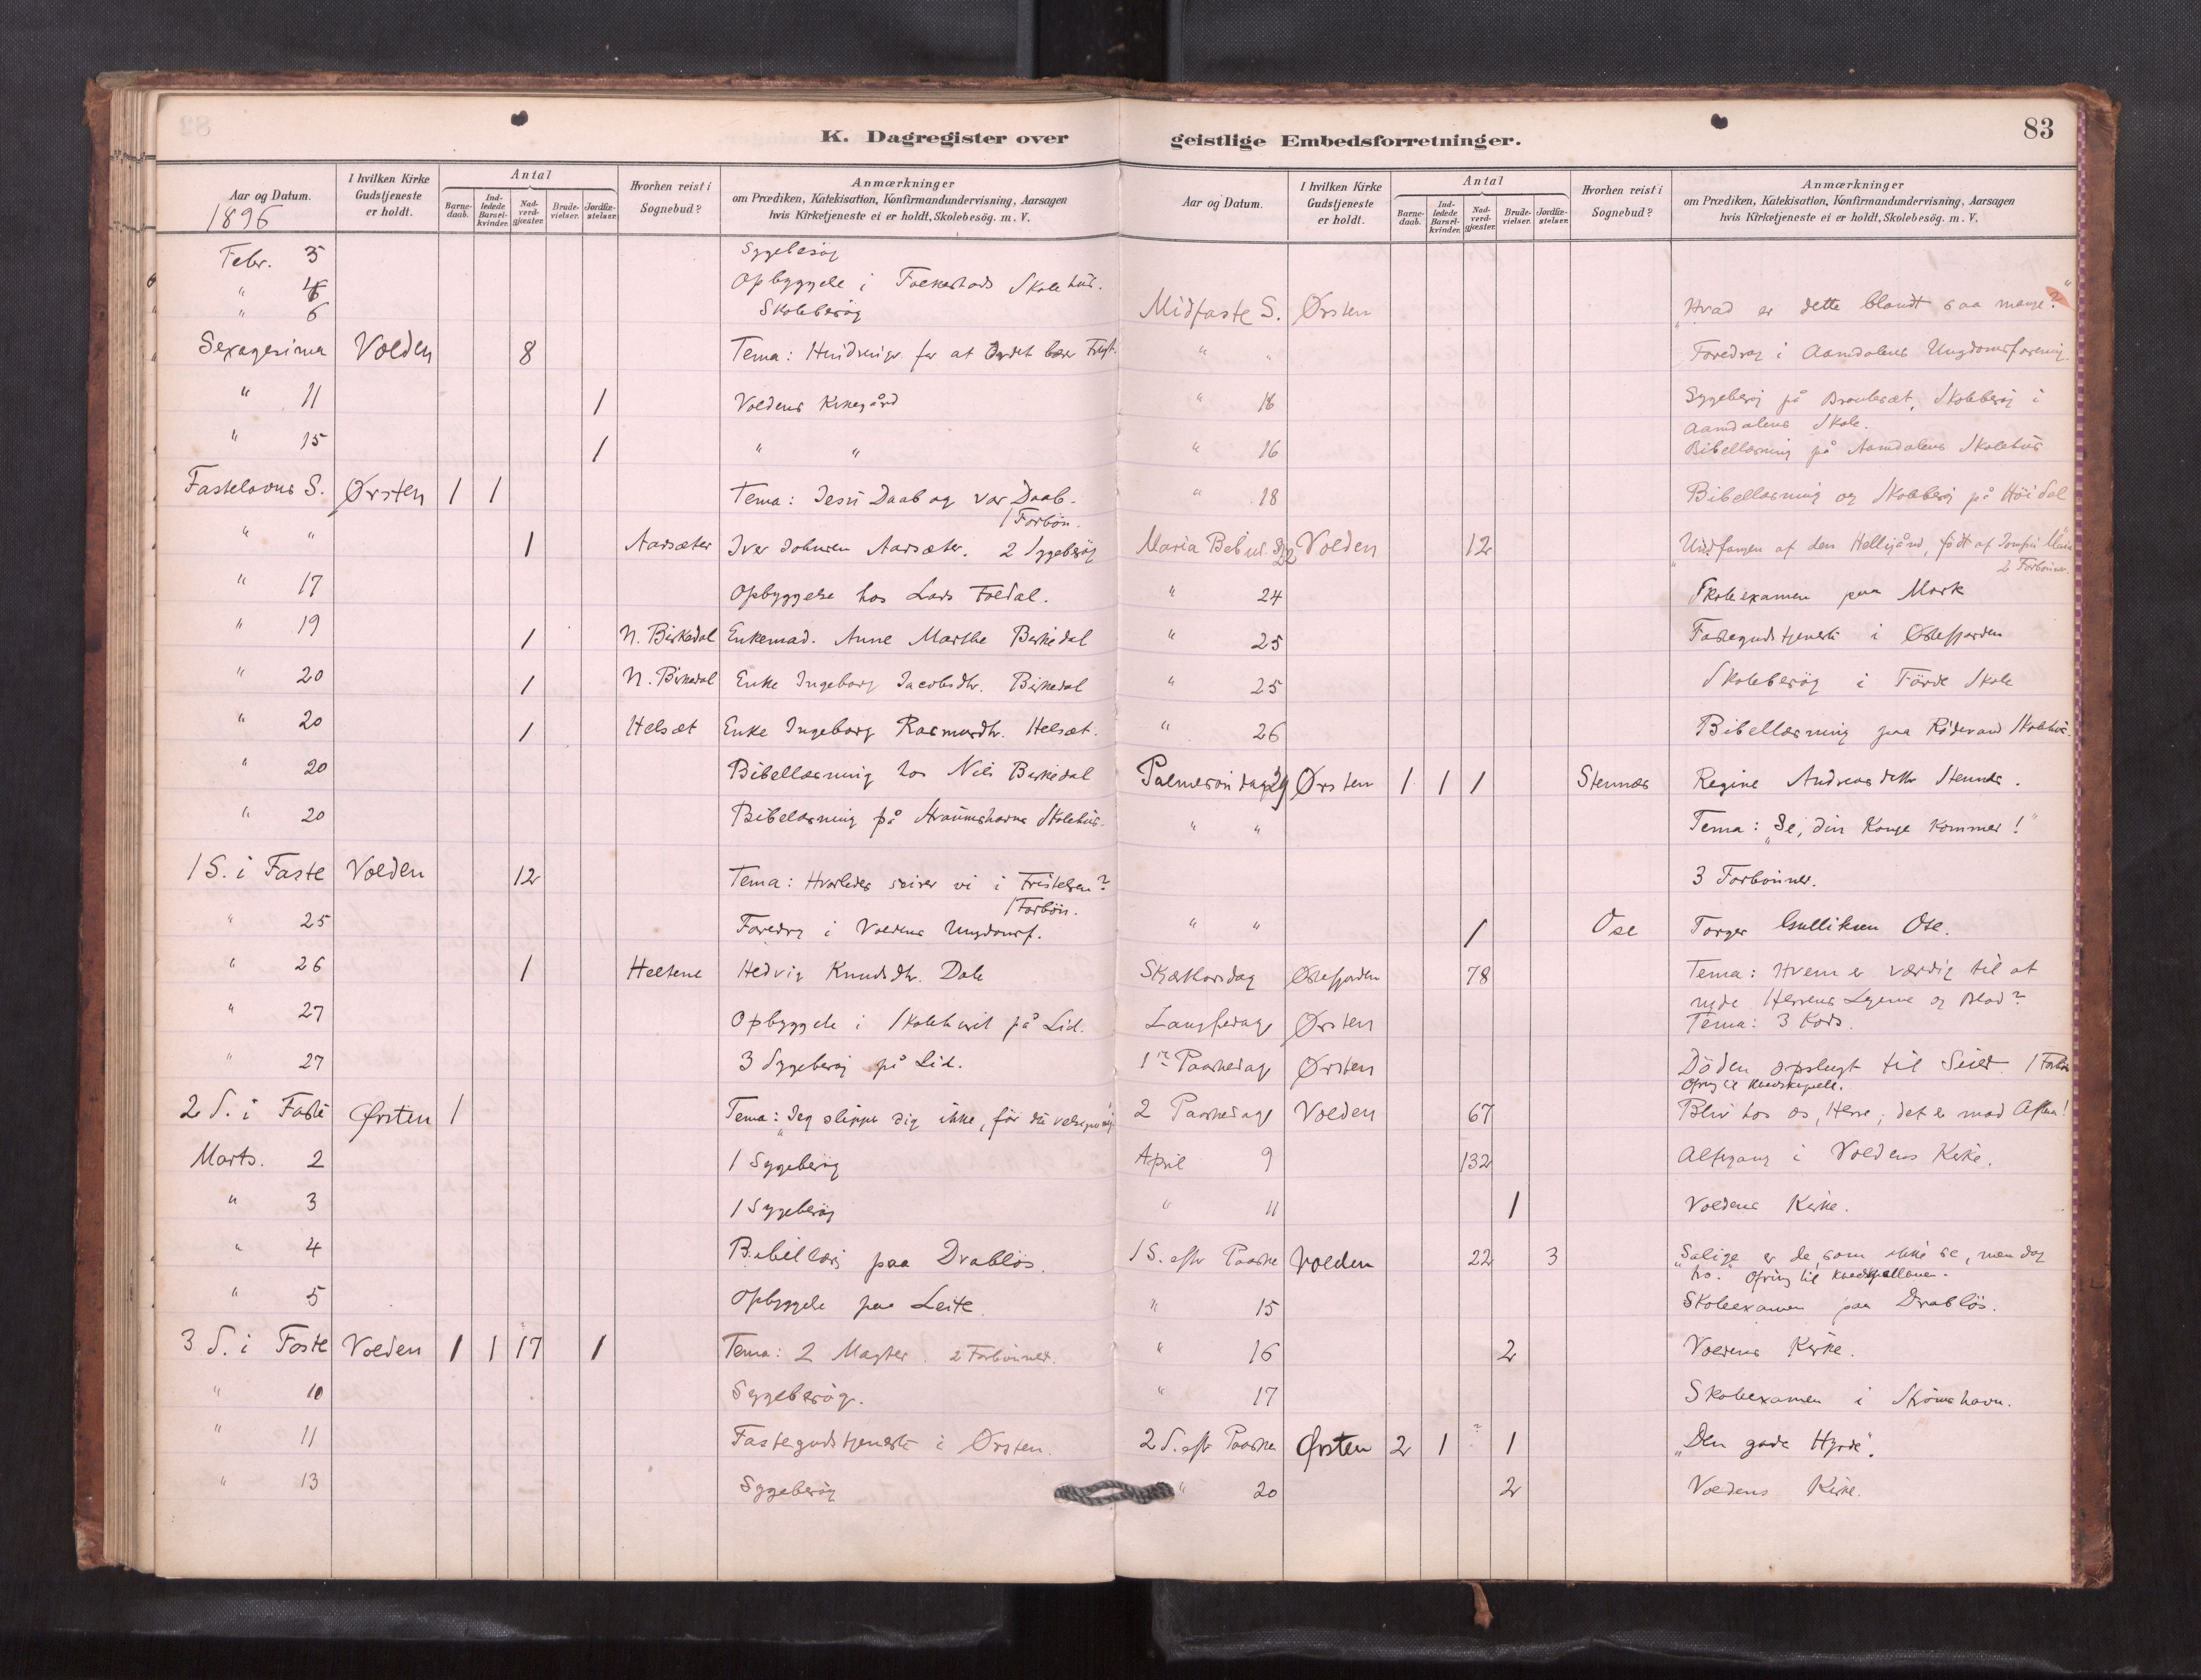 K. Dagregister over
Aar og Datum.
1896
I hvilken Kirke Gudstjeneste er holdt.
Antal
Barne-daab.
Ind-ledede Barsel-kvinder.
Nad-verd-gjæster.
Brude-vielser.
Jordfæ-stelser.
Hvorhen reist i Sognebud?
Anmærkninger
om Prædiken, Katekisation, Konfirmandundervisning, Aarsagen
hvis Kirketjeneste ei er holdt, Skolebesøg. m. V.
Febr. 3 Sygebesøg
" Opbyggelse i Folkestads Skolehus.
" 6 Skolebesøg
Sexagesima Volden 8 Tema: Hindringer for at Ordet bær Frugt.
" 11 1 Voldens Kirkegård
" 15 1 " "
Fastelavns S. Ørsten 1 1 Tema: Jesu Daab og vor Daab.
1 Forbøn.
" " 1 Aarsæter Iver Johnsen Aarsæter. 2 Sygebesøg
" 17 Opbyggelse hos Lars Foldal.
" 19 1 N. Birkedal Enkemad. Anne Marthe Birkedal
" 20 1 N. Birkedal Enke Ingeborg Jacobsdtr. Birkedal
" 20 1 Helsæt Enke Ingeborg Rasmusdtr. Helsæt.
" 20 Bibellæsning hos Nils Birkedal
" 20 Bibelæsning på Straumshavns Skolehus.
1 S. i Faste Volden 12 Tema: Hvorledes seirer vi i Fristelsen?
1 Forbøn.
" 25 Foredrag i Voldens Ungdomsf.
" 26 1 Heltene Hedvig Knudsdtr. Dale
" 27 Opbyggelse i Skolehuset på Lid.
" 27 3 Sygebesøg på Lid.
2 S. i Faste Ørsten 1 Tema: "Jeg slipper dig ikke, før du velsigner mig"
Marts. 2 1 Sygebesøg
" 3 1 Sygebesøg
" 4 Bibellæs paa Drabløs.
" 5 Opbyggelse paa Leite.
3 S. i Faste Volden 1 1 17 1 Tema: 2 Magter. 2 Forbønner.
" 10 Sygebesøg.
" 11 Fastegudstjeneste i Ørsten.
" 13 Sygebesøg
geistlige Embedsforretninger.
83
Aar og Datum.
I hvilken Kirke Gudstjeneste er holdt.
Antal
Barne-daab.
Ind-ledede Barsel-kvinder.
Nad-verd-gjæster.
Brude-vielser.
Jordfæ-stelser.
Hvorhen reist i Sognebud?
Anmærkninger
om Prædiken, Katekisation, Konfirmandundervisning, Aarsagen
hvis Kirketjeneste ei er holdt, Skolebesøg. m. V.
Midfaste S. Ørsten "Hvad er dette blandt saa mange?"
" " Foredrag i Aamdalens Ungdomsforening.
" 16 Sygebesøg på Skolebesøg i
Aamdalens Skole.
" 16 Bibellæsning på Aamdalens Skolehus
" 18 Bibellæsning og Skolebesøg på Høidal
Maria Bebud. 22 Volden 12 Undfangen af den Helligånd, født af Jomfru Maria
2 Forbønner.
" 24 Skoleexamen paa Mork
" 25 Fastegudstjeneste i Østefjorden
" 25 Skolebesøg i Förde Skole
" 26 Bibellæsning paa Rødevand Skolehus.
Palmesøndag 29 Ørsten 1 1 1 Stennæs Regine Andreasdatter Stennæs.
" " Tema: "Se, din Konge kommer!"
3 Forbønner.
" " 1 Ose Torger Gulliksen Ose.
Skærtorsdag Østefjorden 78 Tema: Hvem er værdig til at
nyde Herrens Legeme og Blod?
Langfredag Ørsten Tema: 3 Kors.
1ste Paaskedag Ørsten Döden opslugt til Seier. 1 Forbøn
Ofring til
2 Paaskedag Volden 67 Bliv hos os, Herre, det er mod Aften!
April 9 132 Altergang i Voldens Kirke.
" 11 1 Voldens Kirke.
1 S. efter Paaske Volden 22 3 "Salige er de, som ikke se, men dog
tro." Ofring til
" 15 Skoleexamen paa Drabløs.
" 16 2 Voldens Kirke.
" 17 Skoleexamen i Strömshavn.
2 S. eft. Paaske Ørsten 2 1 1 "Den gode Hyrde".
" 20 2 Voldens Kirke.